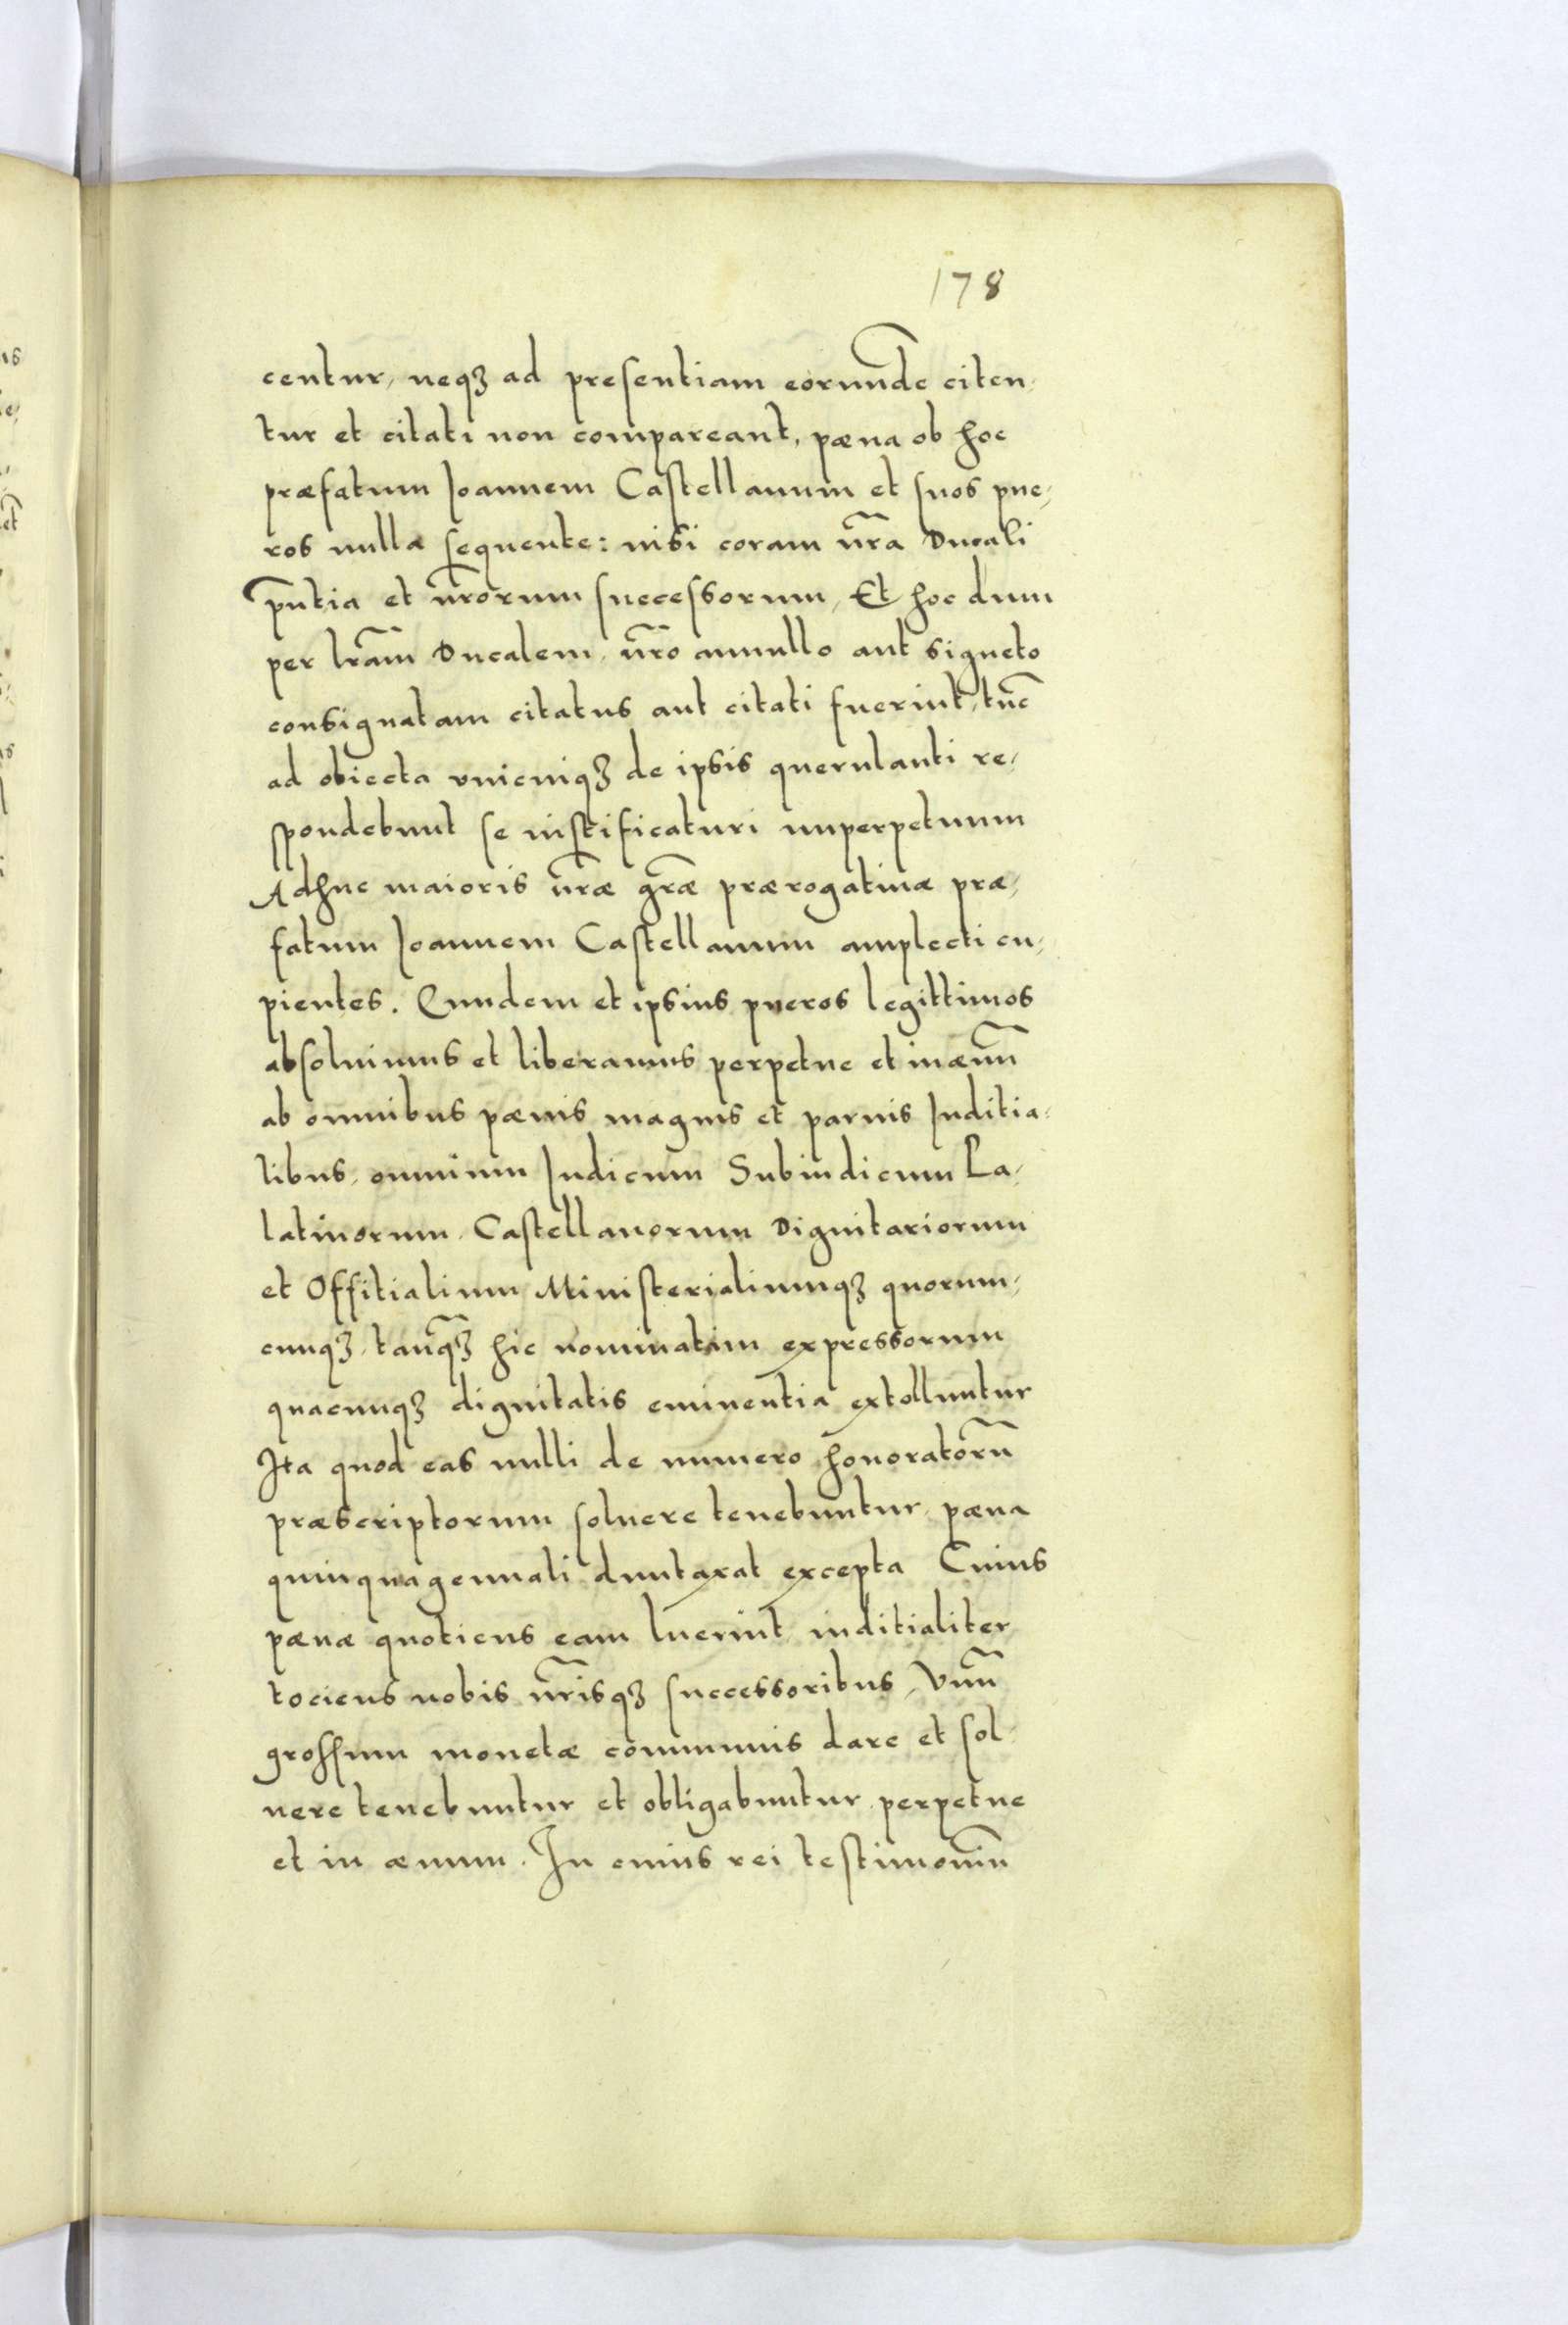 178
centur, neqʒ ad presentiam eorunde͂ citen-
tur et citati non compareant, pœna ob hoc
præfatum Ioannem Castellanum et suos pue-
ros nulla sequente: nisi coram nr̃a Ducali
pñtia et nr̃orum successorum, Et hoc dum
per lr̃am Ducalem, nr̃o annullo aut signeto
consignatam citatus aut citati fuerint, tũc
ad obiecta vnicuiqʒ de ipsis querulanti re-
spondebunt se iustificaturi inperpetuum
Adhuc maioris nr̃æ gr̃æ prærogatiuæ præ-
fatum Ioannem Castellanum amplecti cu-
pientes. Eundem et ipsius pueros legittimos
absoluimus et liberamus perpetue et inæuũ
ab omnibus pœnis magnis et paruis Iuditia-
libus, omnium Iudicum Subiudicum Pa-
latinorum, Castellanorum Dignitariorum
et Offitialium Ministerialiumqʒ quorum-
cunqʒ, tanq̃ʒ hic nominatim expressorum
quacunqʒ dignitatis eminentia extolluntur
Ita quod eas nulli de numero honoratorũ
præscriptorum soluere tenebuntur, pœna
quinquagennali duntaxat excepta Cuius
pœnæ quotiens eam luerint iuditialiter
tociens nobis nr̃isqʒ successoribus, Vnũ
grossum monetæ communis dare et sol-
uere tenebuntur et obligabuntur, perpetue
et in æuum. In cuius rei testimoniũ